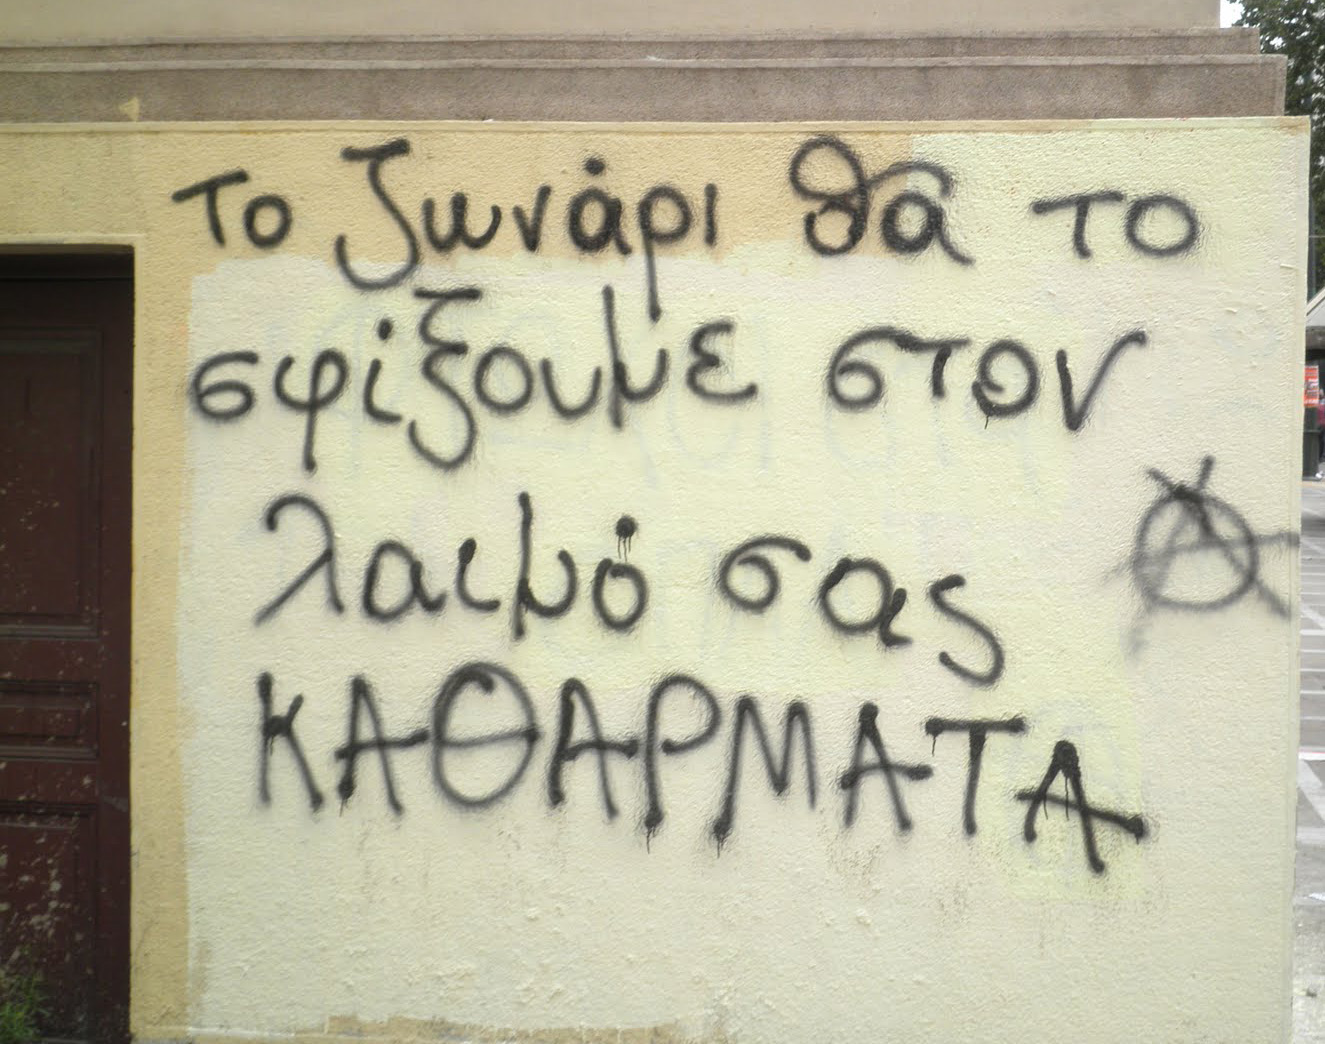 το ζωνάρι θα το
σφίξουμε στον
λαιμό σας
ΚΑΘΑΡΜΑΤΑ